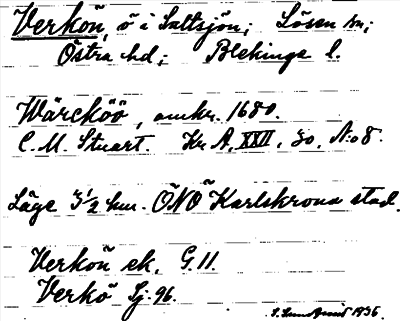 Verkön, ö i Saltsjön; Lösen sn;
Östra hd; Blekinge l.
Wärcköö, omkr. 1680.
C. M. Stuart. Kr. A. XXII, 30, N:o 8.
Läge 3 1/2 km. ÖNÖ Karlskrona stad.
Verkön ek. G. 11.
Verkö Sj. 96.
1936.